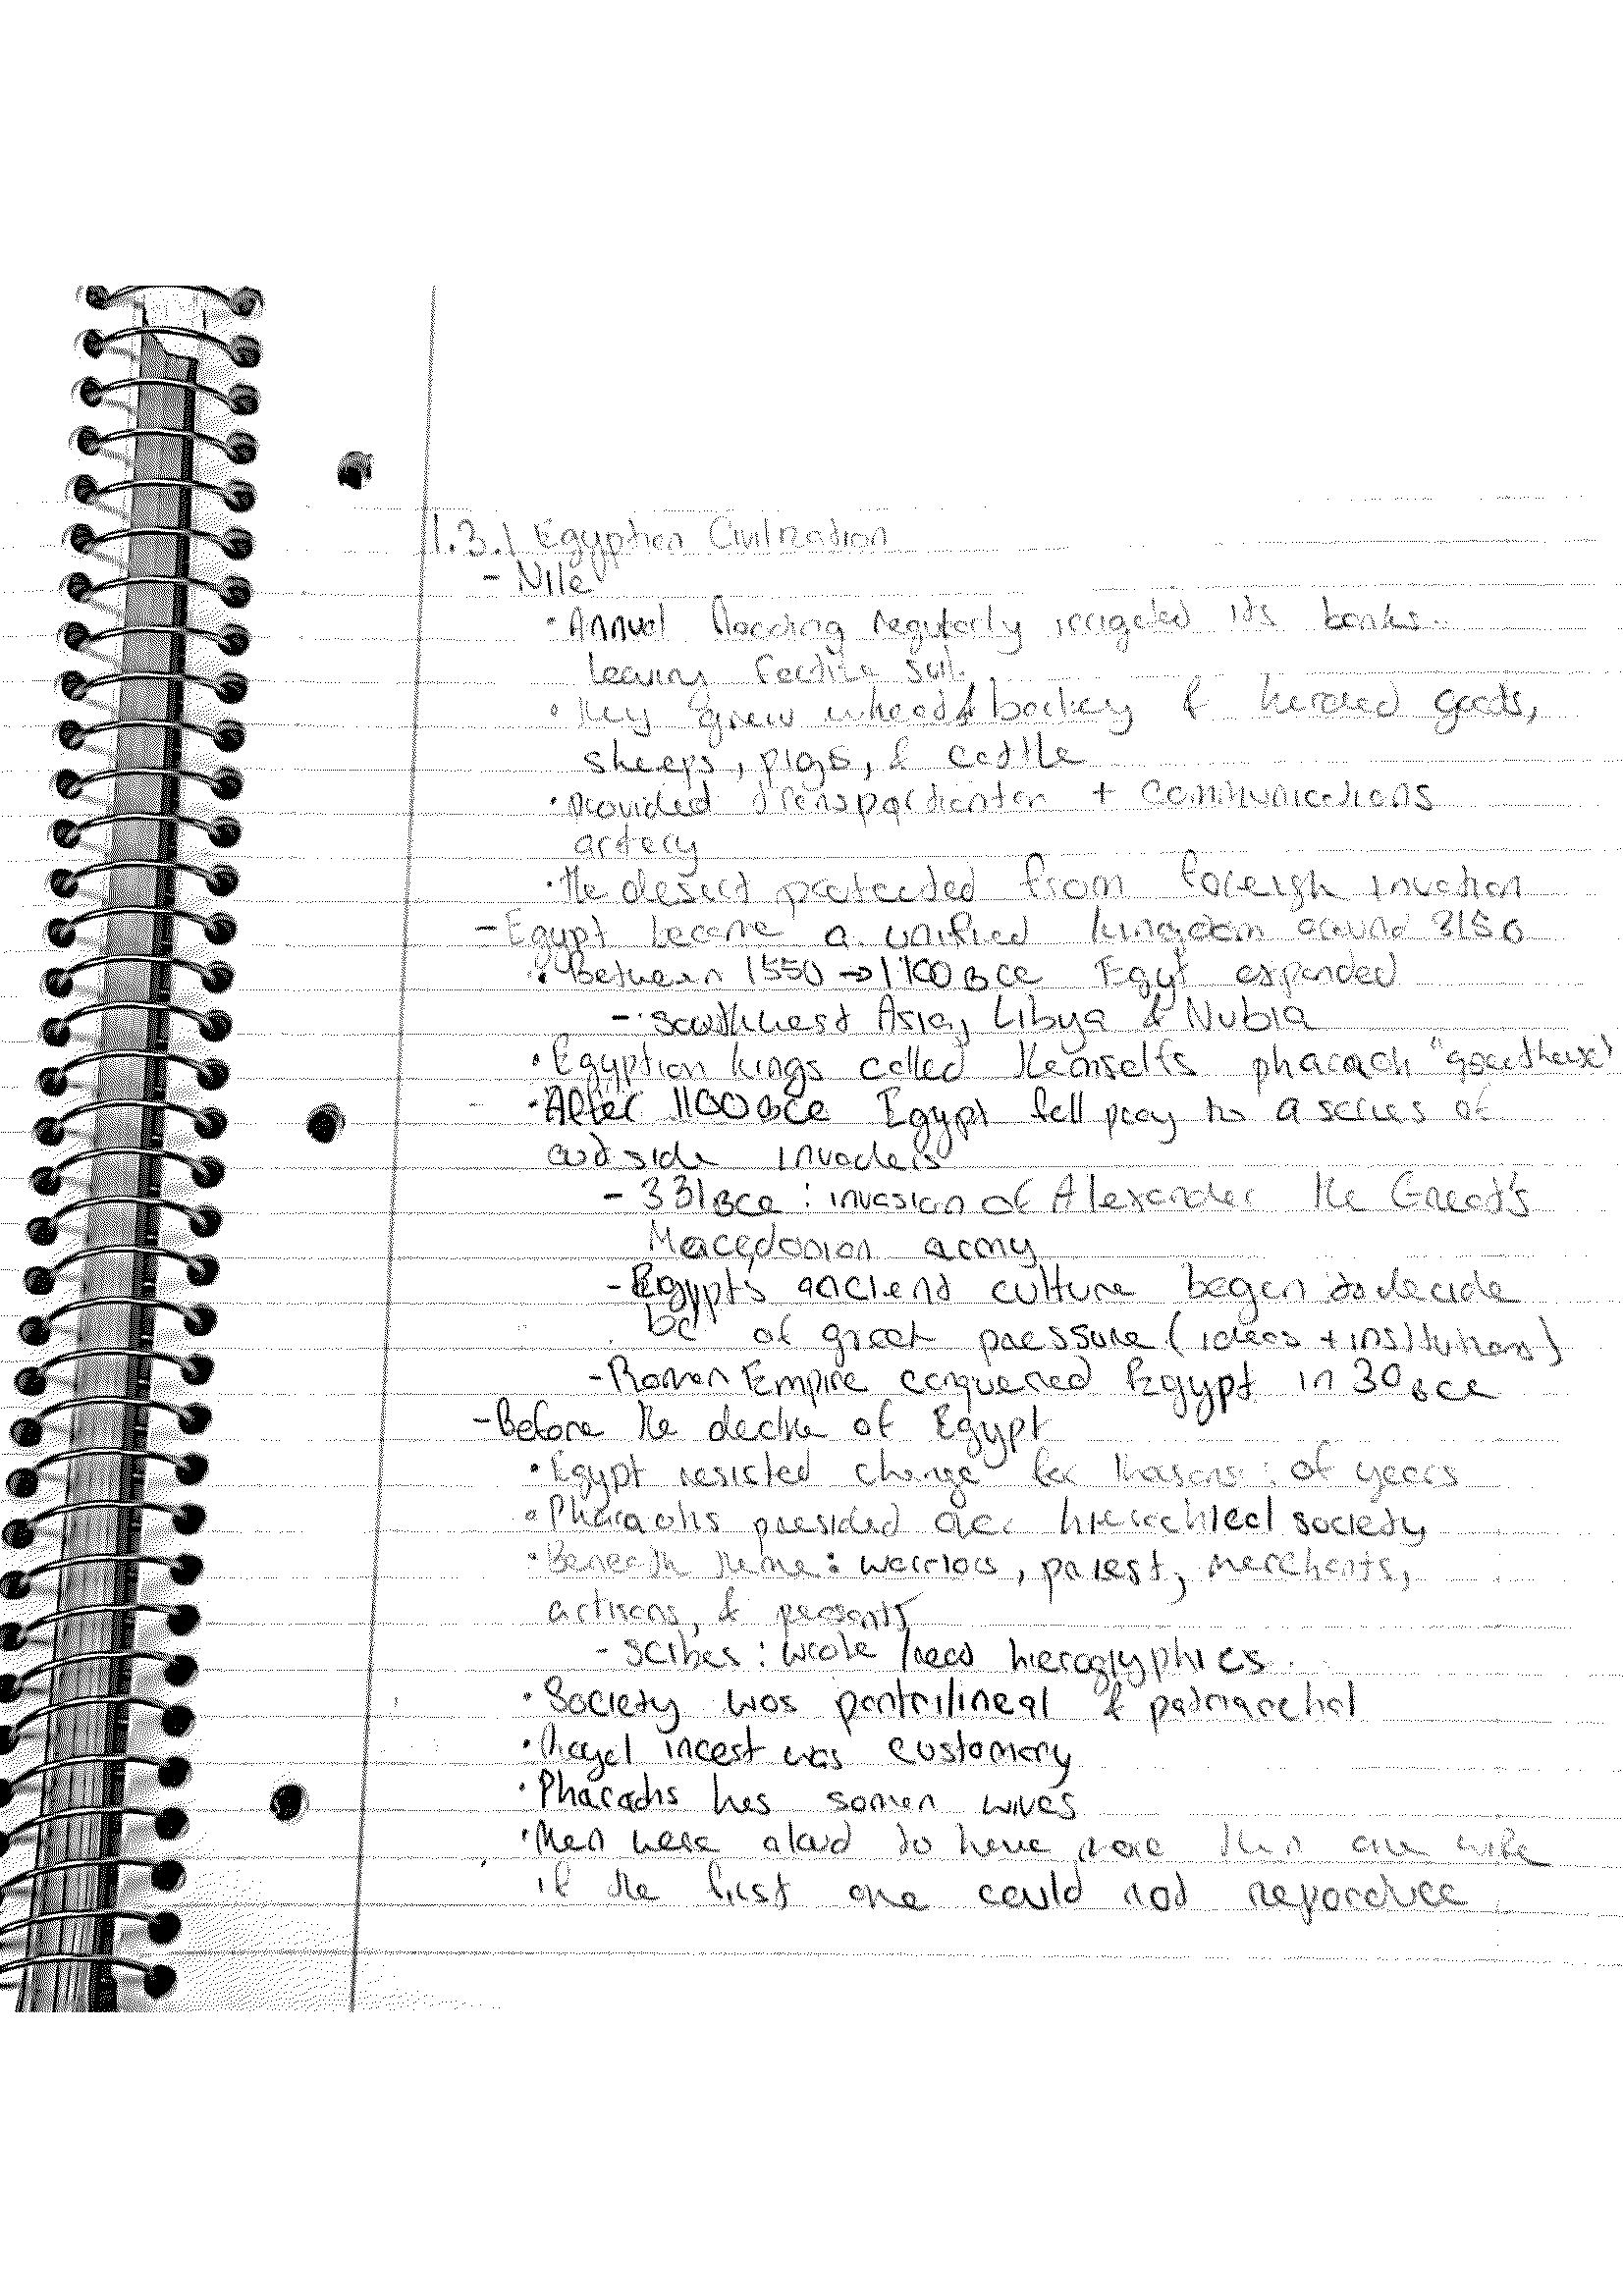 1.3.1 Egyption Civilization
- Nile
• Annual flooding regularly irrigated its banks
leaving fertile soil.
• They grew wheat & barley & herded goats,
sheeps, pigs, & cattle
• Provided + communications
artery
• The desert protected from foreign invation
- Egypt became a unified kingdom around 3150
• Between 1550 → 1100 BCE Egypt expanded
- southwest Asia, Libya & Nubia
• Egyption kings called themselfs pharaoh
• After 1100 BCE Egypt fell pray to a series of
outside invaders
- 331 BCE : invasion of Alexander the Great's
Macedonian army
- Egypt's ancient culture began to
bc of great pressure (ideas + institutions)
- Roman Empire conquered Egypt in 30 BCE
- Before the decline of Egypt
• Egypt resisted change for of years
• Pharaohs presided over society
• Beneath : warriors, priest, merchants,
artisans, & peasants
- scribes : wrote / read hieroglyphics
• Society was patrilineal & patriarchal
• Royal incest was customary
• Pharaohs wives
• Men were to have more than one wife
if the first one could not